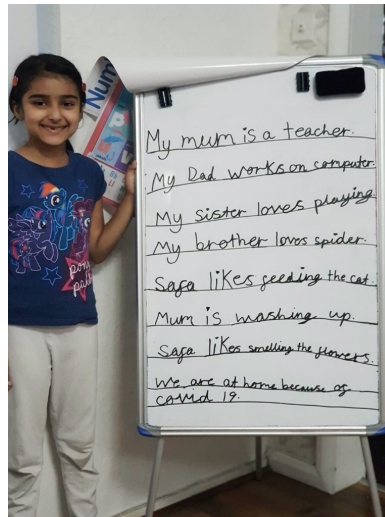 Num
My mum is a teacher.
My Dad works on computer.
My sister loves playing.
My brother loves spider.
Safa likes feeding the cat.
Mum is washing up.
Safa likes smelling the flowers.
We are at home because of
covid 19.
pony